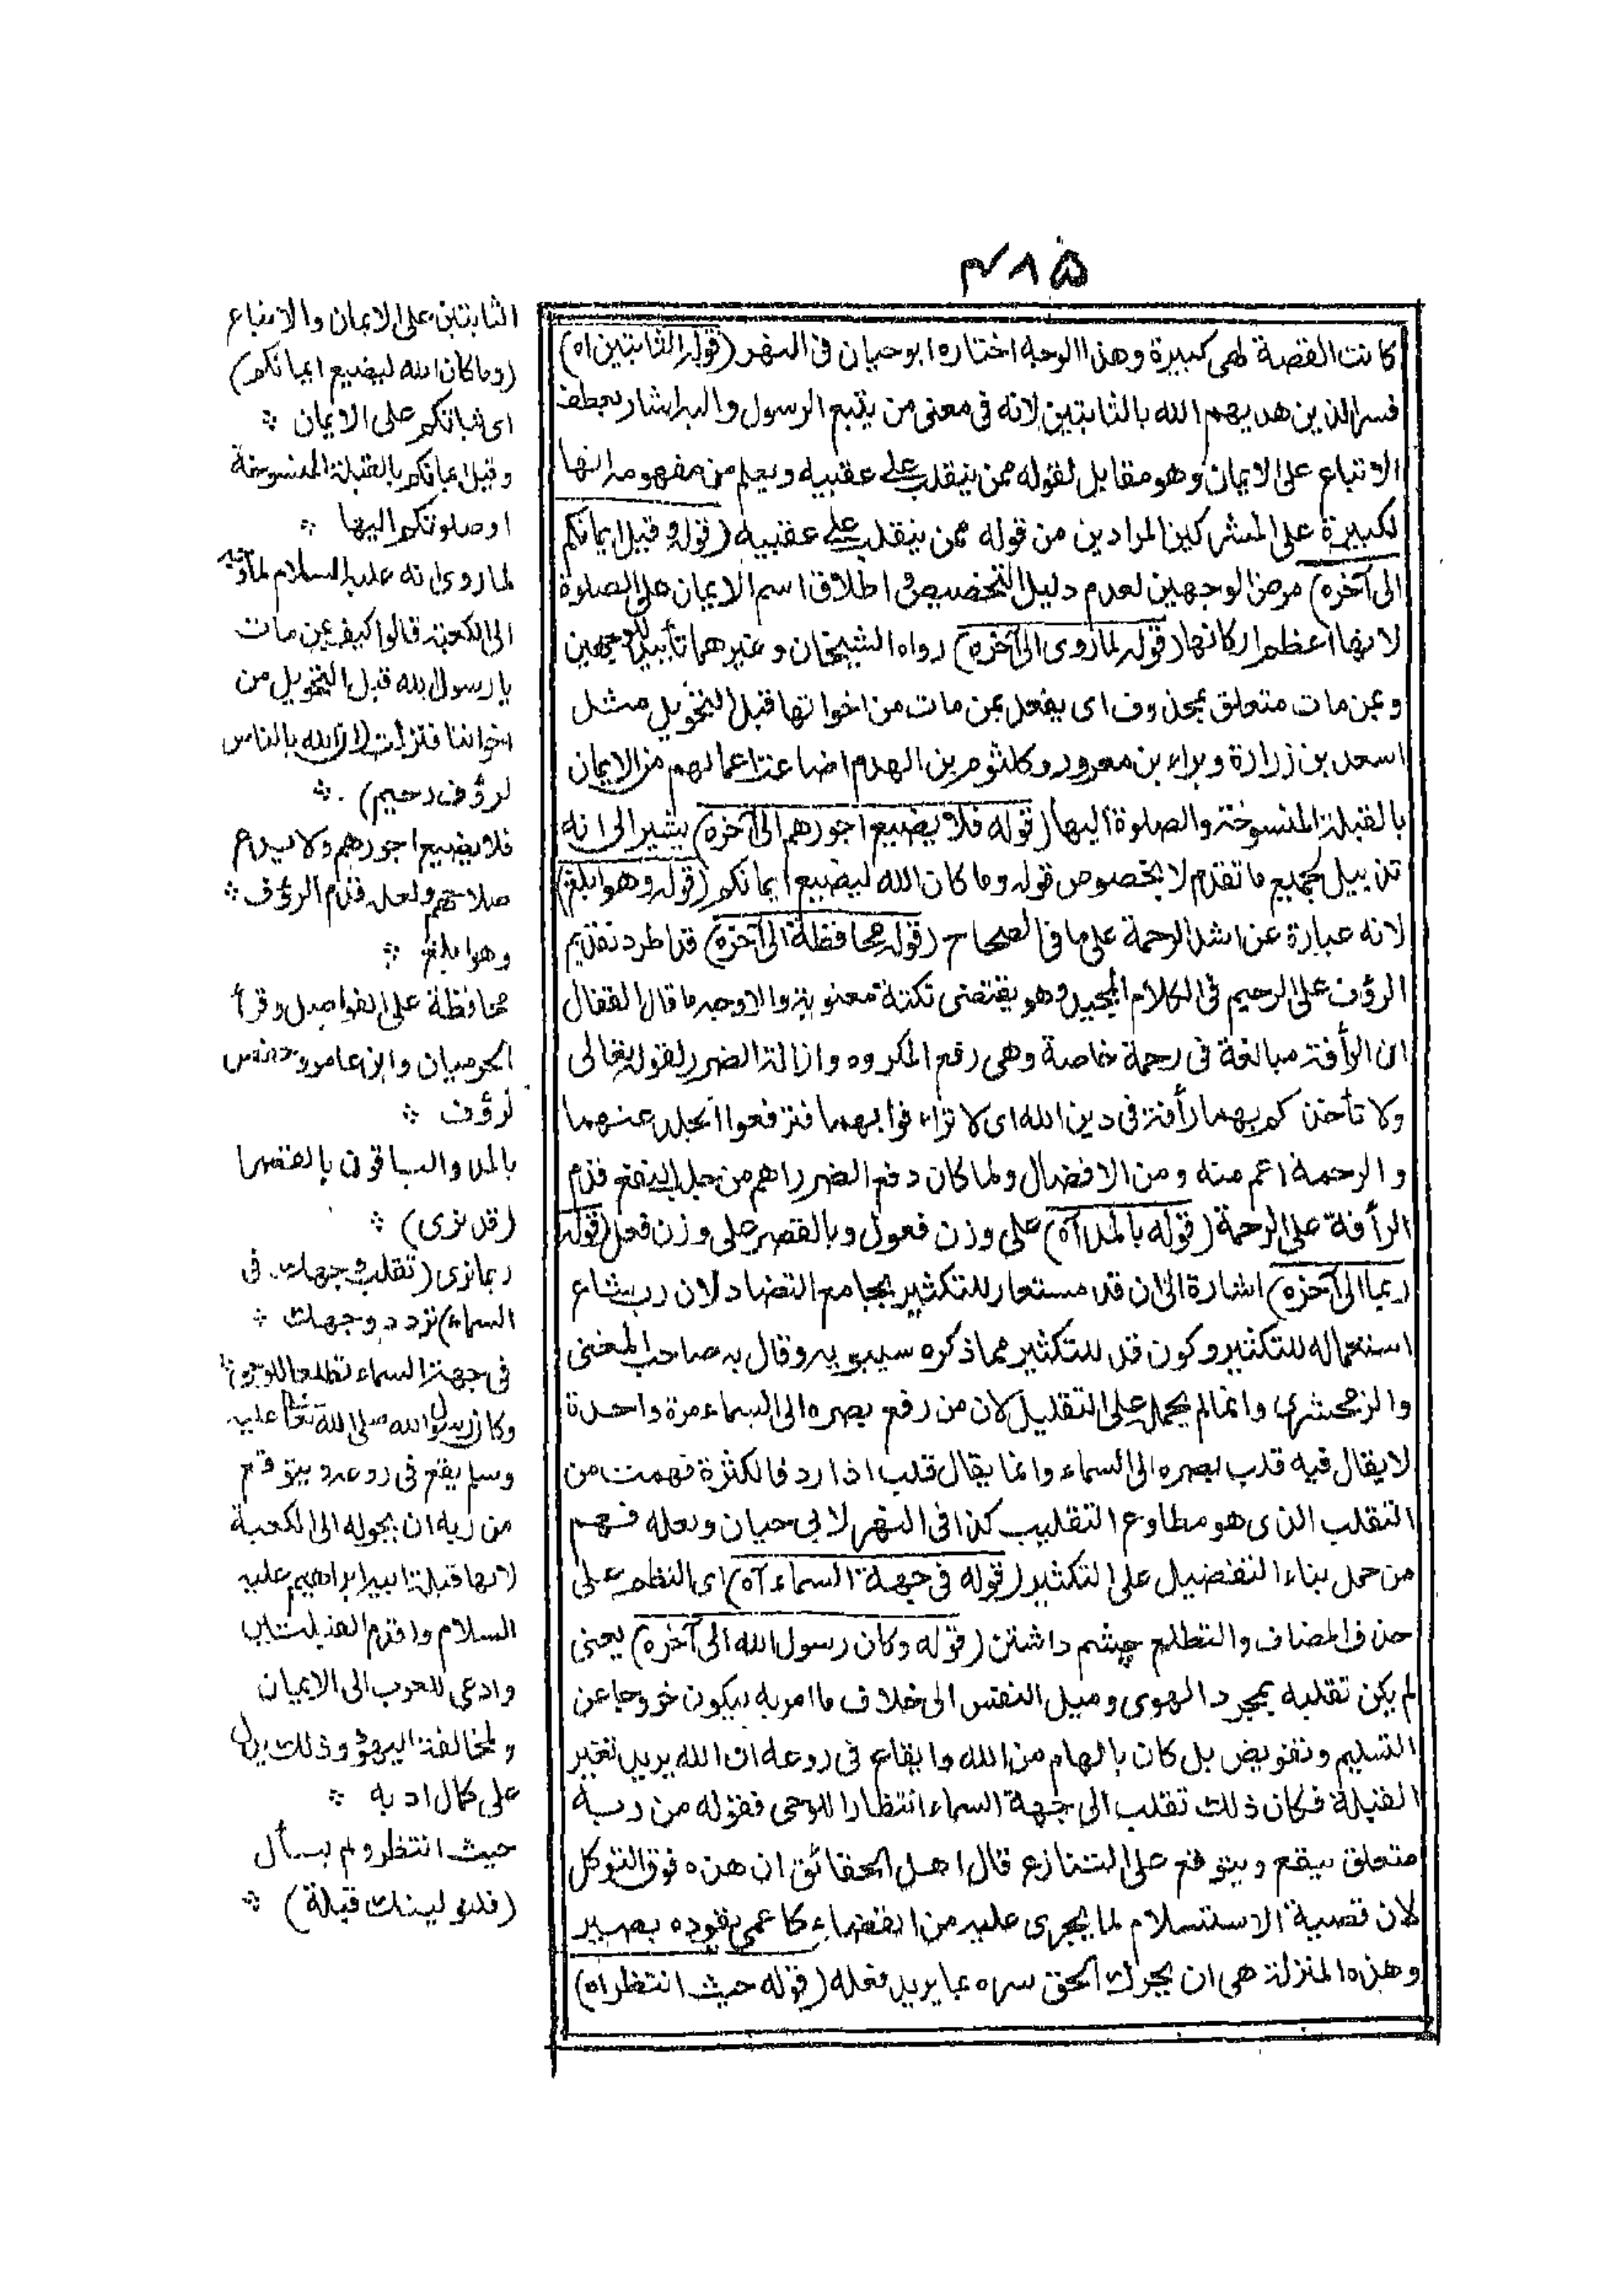 ۴۱۵
كانت القصة لهى كبيرة وهذا الوجه اختاره ابو حيان فى النهر (قوله الثابتين اه)
فسر الذين هديهم الله بالثابتين لانه فى معنى من يتبع الرسول واليه اشار بعطف
الاتباع على الايمان وهو مقابل لقوله ممن ينقلب على عقبيه ويعلم من مفهومه انها
لكبيرة على المشركين المرادين من قوله ممن ينقلب على عقبيه (قوله وقيل ايمانكم
الى آخره) مرض الوجهين لعدم دليل التخصيص واطلاق اسم الايمان على الصلوة
لانها اعظم اركانها (قوله لما روى الى آخره) رواه الشيخان وغيرهما تأييد للوجهين
وبمن مات متعلق بمحذوف اى يفعل بمن مات من اخواتها قبل التحويل مثل
اسعد بن زرارة وبراء بن معرور وكلثوم بن الهدم اضاعة اعمالهم من الايمان
بالقبلة المنسوخة والصلوة اليها (قوله فلا يضيع اجورهم الى آخره) يشير الى انه
تذييل لجميع ما تقدم لا بخصوص قوله وما كان الله ليضيع ايمانكم (قوله وهو ابلغ)
لانه عبارة عن اشد الرحمة على ما فى الصحاح (قوله محافظة الى آخره) قد اطرد تقديم
الرؤف على الرحيم فى الكلام المجيد وهو يقتضى نكتة معنوية والاوجه ما قال القفال
ان الرأفة مبالغة فى رحمة خاصة وهى رفع المكروه وازالة الضرر لقوله تعالى
ولا تأخذكم بهما رأفة فى دين الله اى لا ترأفوا بهما فترفعوا الجلد عنهما
والرحمة اعم منه ومن الافضال ولما كان دفع الضرر اهم من جلب النفع قدم
الرأفة على الرحمة (قوله بالمد آه) على وزن فعول وبالقصر على وزن فعل (قوله
ربما الى آخره) اشارة الى ان قد مستعار للتكثير بجامع التضاد لان رب شاع
استعماله للتكثير وكون قد للتكثير مما ذكره سيبويه وقال به صاحب المغنى
والزمحشرى وانما لم يحمل على التقليل لان من رفع بصره الى السماء مرة واحدة
لا يقال فيه قلب بصره الى السماء وانما يقال قلب اذا ردد فالكثرة فهمت من
التقلب الذى هو مطاوع التقليب كذا فى النهر لابى حيان ولعله فهم
من حمل بناء التفضيل على التكثير (قوله فى جهة السماء آه) اى النظر على
حذف المضاف والتطلع چشم داشتن (قوله وكان رسول الله الى آخره) يعنى
لم يكن تقلبه بمجرد الهوى وميل النفس الى خلاف ما امر به ليكون خروجا عن
التسليم وتفويض بل كان بالهام من الله وايقاع فى روعه ان الله يريد تغير
القبلة فكان ذلك تقلب الى جهة السماء انتظارا للوحى فقوله من ربه
متعلق بيقع ويتوقع على التنازع قال اهل الحقائق ان هذه فوق التوكل
لان قصية الاستسلام لما يجرى عليه من القضاء كاعمى يقوده بصير
وهذه المنزلة هى ان يحرك الحق سره بما يريد فعله (قوله حيث انتظر اه)
الثابتين على الايمان والاتباع
(وما كان الله ليضيع ايمانكم)
اى ثباتكم على الايمان
وقيل ايمانكم بالقبلة المنسوخة
او صلوتكم اليها
لما روى انه عليه السلام لما توجه
الى الكعبة قالوا كيف بمن مات
يا رسول الله قبل التحويل من
اخواننا فنزلت (ان الله بالناس
لرؤف رحيم)
فلا يضيع اجورهم ولا يدع
صلاحهم ولعله قدم الرؤف
وهو ابلغ
محافظة على الفواصل وقرأ
الحرميان وابن عامر وحفص
لرؤف
بالمد والباقون بالقصر
(قد نرى)
ربما نرى (تقلب وجهك فى
السماء) تردد وجهك
فى جهة السماء تطلعا للوحى
وكان رسول الله صلى الله تعالى عليه
وسلم يقع فى روعه ويتوقع
من ربه ان يحوله الى الكعبة
لانها قبلة ابيه ابراهيم عليه
السلام واقدم القبلتين
وادعى للعرب الى الايمان
ولمخالفة اليهود وذلك يدل
على كمال ادبه
حيث انتظر ولم يسأل
(فلنولينك قبلة)